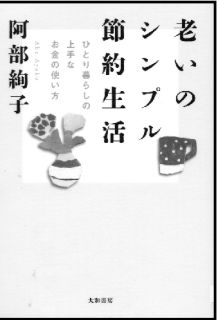 老いの
シンプル
節約生活
ひとり暮らしの
上手な
お金の使い方
阿部絢子
Abe Ayako
大和書房